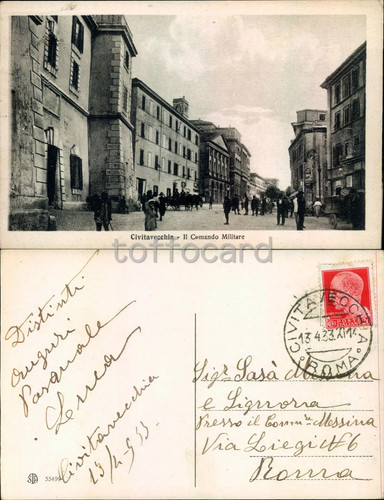 Civitavecchia - Il Comando Militare
toffocard
Distinti
auguri
Pasquale
Civitavecchia
13/4/933
CIVITAVECCHIA
13.4.33.XI.14
ROMA
Sig. Sasà Messina
e Signora
Presso il Comm.re Messina
Via Liegi N 6
Roma